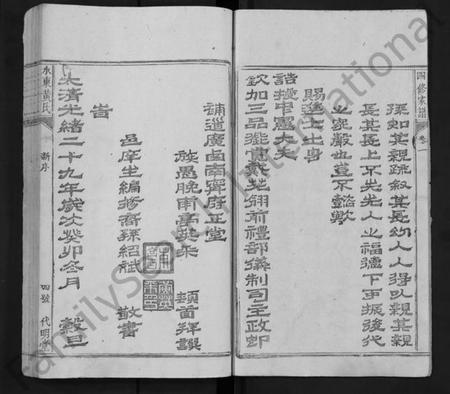 四修家譜 卷一
孫如其親疏敘其長幼人人得以親其親
長其長上不失先人之福德下可振後代
之家嚴也豈不懿歟
賜進士出身
誥授中憲大夫
欽加三品銜賞戴花翎前禮部儀制司主政即
補道廣西南寧府正堂
族愚晚南亭
頓首拜撰
邑庠生編修裔孫紹
敬書
皆
大清光緒二十九年歲次癸卯冬月 穀旦
水東黃氏 新序 四號 代明
FamilySearch International